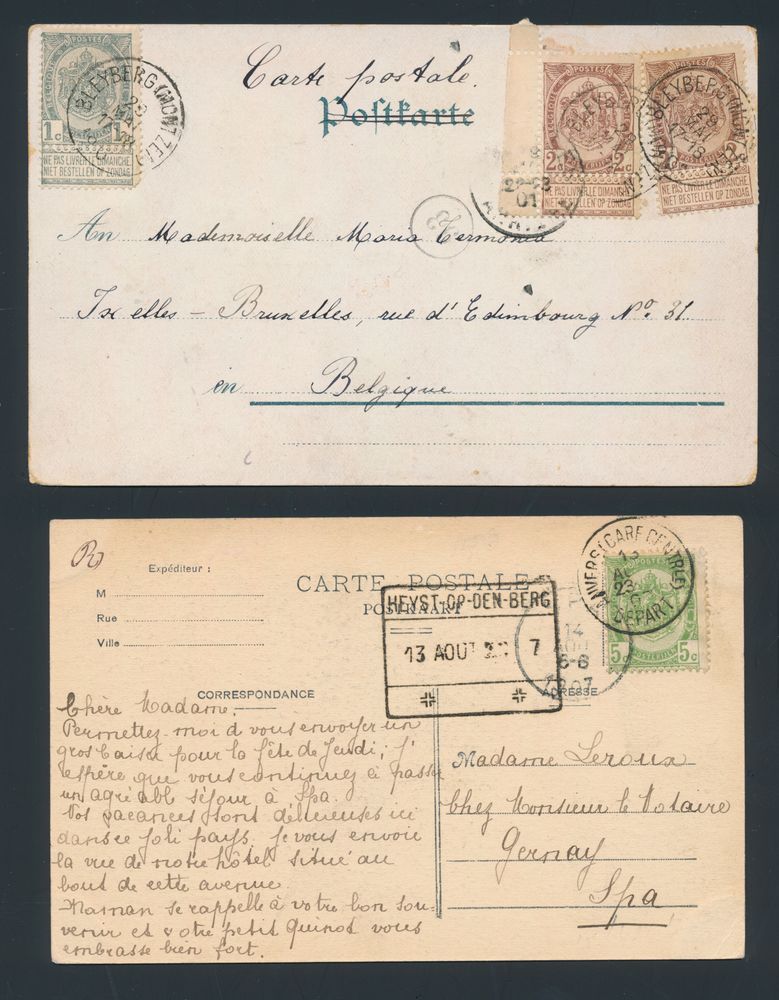 BELGIQUE
POSTES
1c 1c
NE PAS LIVRER LE DIMANCHE
NIET BESTELLEN OP ZONDAG
BLEYBERG (MONTZEN)
Carte postale.
Postkarte
POSTES
2c
NE PAS LIVRER LE DIMANCHE
NIET BESTELLEN OP ZONDAG
POSTES
2c
NE PAS LIVRER LE DIMANCHE
NIET BESTELLEN OP ZONDAG
BLEYBERG (MONTZEN)
29
MAI
17-18
01
An Mademoiselle Maria Termonia
Ixelles - Bruxelles, rue d'Edimbourg No. 31
en Belgique
R
Expéditeur :
M
Rue
Ville
CARTE POSTALE
POSTKAART
HEYST-OP-DEN-BERG
13 AOUT 7
ANVERS (GARE CENTRALE)
13
23
DEPART
POSTES
POSTERIJEN
5c 5c
14
1907
CORRESPONDANCE
ADRESSE
Chère Madame.
Permettez-moi d vous envoyer un
gros baiser pour la fête de Jeudi; j'
espère que vous continuez à passer
un agréabl séjour à Spa.
Nos vacances sont délicieuses ici
dans ce joli pays. Je vous envoie
la vue de notre hôtel situé au
bout de cette avenue.
Maman se rappelle à votre bon sou-
venir et votre petit Quinot vous
embrasse bien fort.
Madame Leroux
Chez Monsieur le Notaire
Gernay
Spa